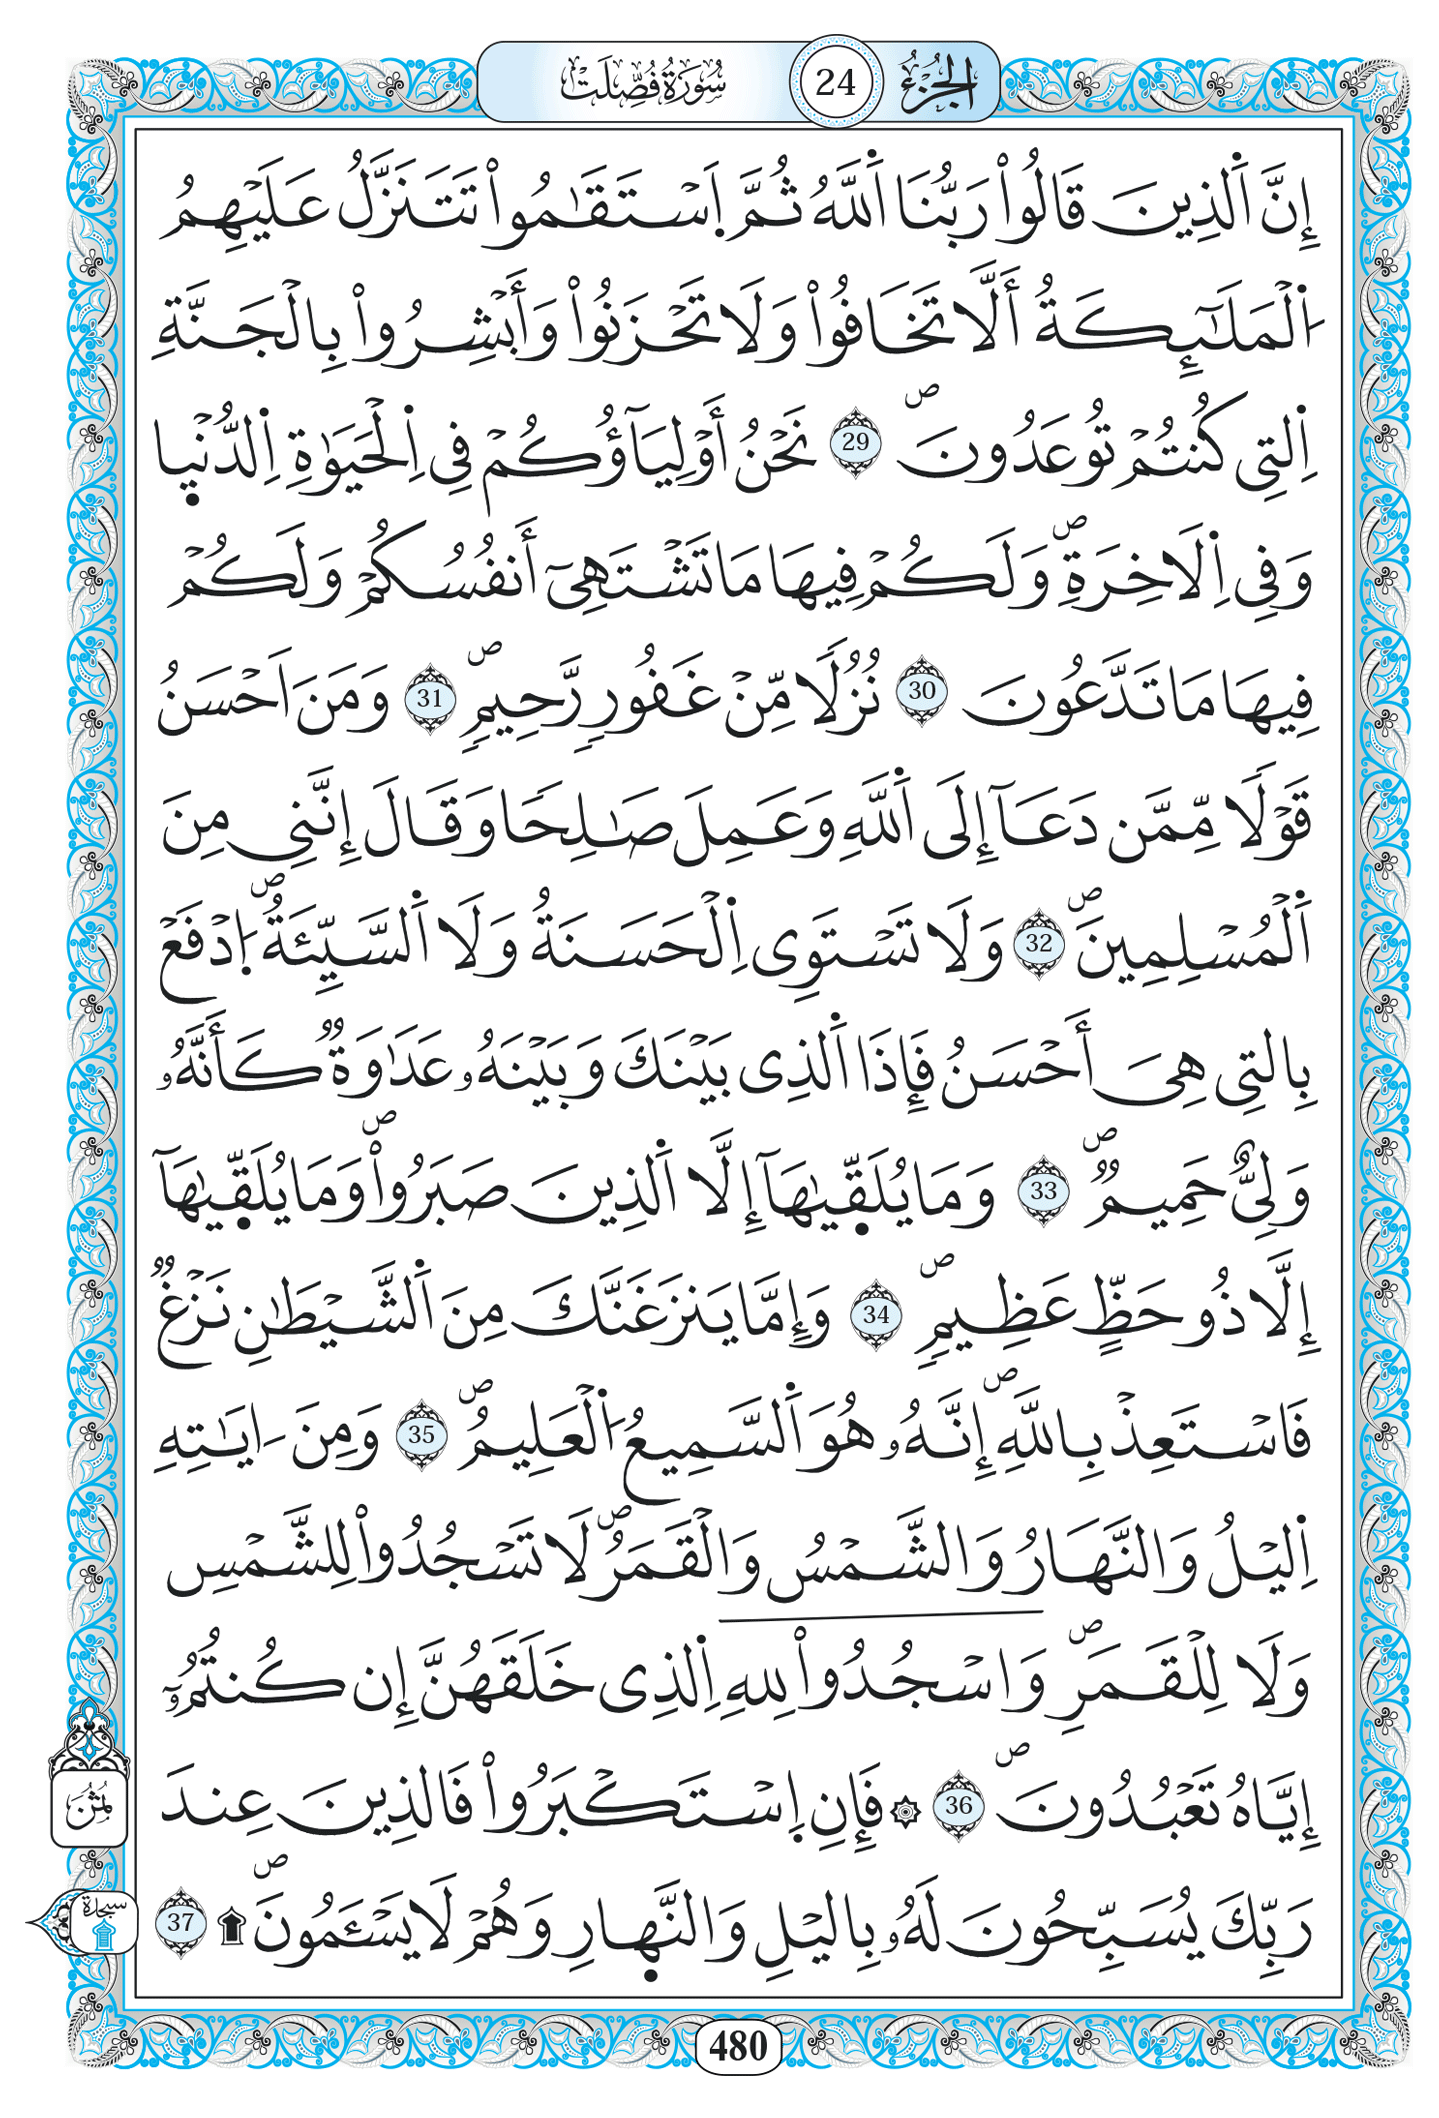 الجزء 24 سورة فصلت
إِنَّ اَ۬لذِينَ قَالُواْ رَبُّنَا اَ۬للَّهُ ثُمَّ اَ۪سْتَقَٰمُواْ تَتَنَزَّلُ عَلَيْهِمُ
اُ۬لْمَلَٰٓئِكَةُ أَلَّا تَخَافُواْ وَلَا تَحْزَنُواْ وَأَبْشِرُواْ بِالْجَنَّةِ
اِ۬لتِي كُنتُمْ تُوعَدُونَۖ 29 نَحْنُ أَوْلِيَآؤُكُمْ فِي اِ۬لْحَيَوٰةِ اِ۬لدُّنْي۪ا
وَفِي اِ۬لَاخِرَةِۖ وَلَكُمْ فِيهَا مَا تَشْتَهِيٓ أَنفُسُكُمْ وَلَكُمْ
فِيهَا مَا تَدَّعُونَ 30 نُزُلاٗ مِّنْ غَفُورٖ رَّحِيمٖۖ 31 وَمَنَ اَحْسَنُ
قَوْلاٗ مِّمَّن دَعَآ إِلَي اَ۬للَّهِ وَعَمِلَ صَٰلِحاٗ وَقَالَ إِنَّنِي مِنَ
اَ۬لْمُسْلِمِينَۖ 32 وَلَا تَسْتَوِي اِ۬لْحَسَنَةُ وَلَا اَ۬لسَّيِّئَةُۖ اُ۪دْفَعْ
بِالتِي هِيَ أَحْسَنُ فَإِذَا اَ۬لذِي بَيْنَكَ وَبَيْنَهُۥ عَدَٰوَةٞ كَأَنَّهُۥ
وَلِيٌّ حَمِيمٞۖ 33 وَمَا يُلَقّ۪يٰهَآ إِلَّا اَ۬لذِينَ صَبَرُواْۖ وَمَا يُلَقّ۪يٰهَآ
إِلَّا ذُو حَظٍّ عَظِيمٖۖ 34 وَإِمَّا يَنزَغَنَّكَ مِنَ اَ۬لشَّيْطَٰنِ نَزْغٞ
فَاسْتَعِذْ بِاللَّهِۖ إِنَّهُۥ هُوَ اَ۬لسَّمِيعُ اُ۬لْعَلِيمُۖ 35 وَمِنَ اٰيَٰتِهِ
اِ۬ليْلُ وَالنَّهَارُ وَالشَّمْسُ وَالْقَمَرُۖ لَا تَسْجُدُواْ لِلشَّمْسِ
وَلَا لِلْقَمَرِۖ وَاسْجُدُواْ لِلهِ اِ۬لذِي خَلَقَهُنَّ إِن كُنتُمُۥٓ
إِيَّاهُ تَعْبُدُونَۖ 36 ۞ فَإِنِ اِ۪سْتَكْبَرُواْ فَالذِينَ عِندَ
رَبِّكَ يُسَبِّحُونَ لَهُۥ بِاليْلِ وَالنَّه۪ارِ وَهُمْ لَا يَسْـَٔمُونَۖ ۩ 37
ثمن
سجدة
480